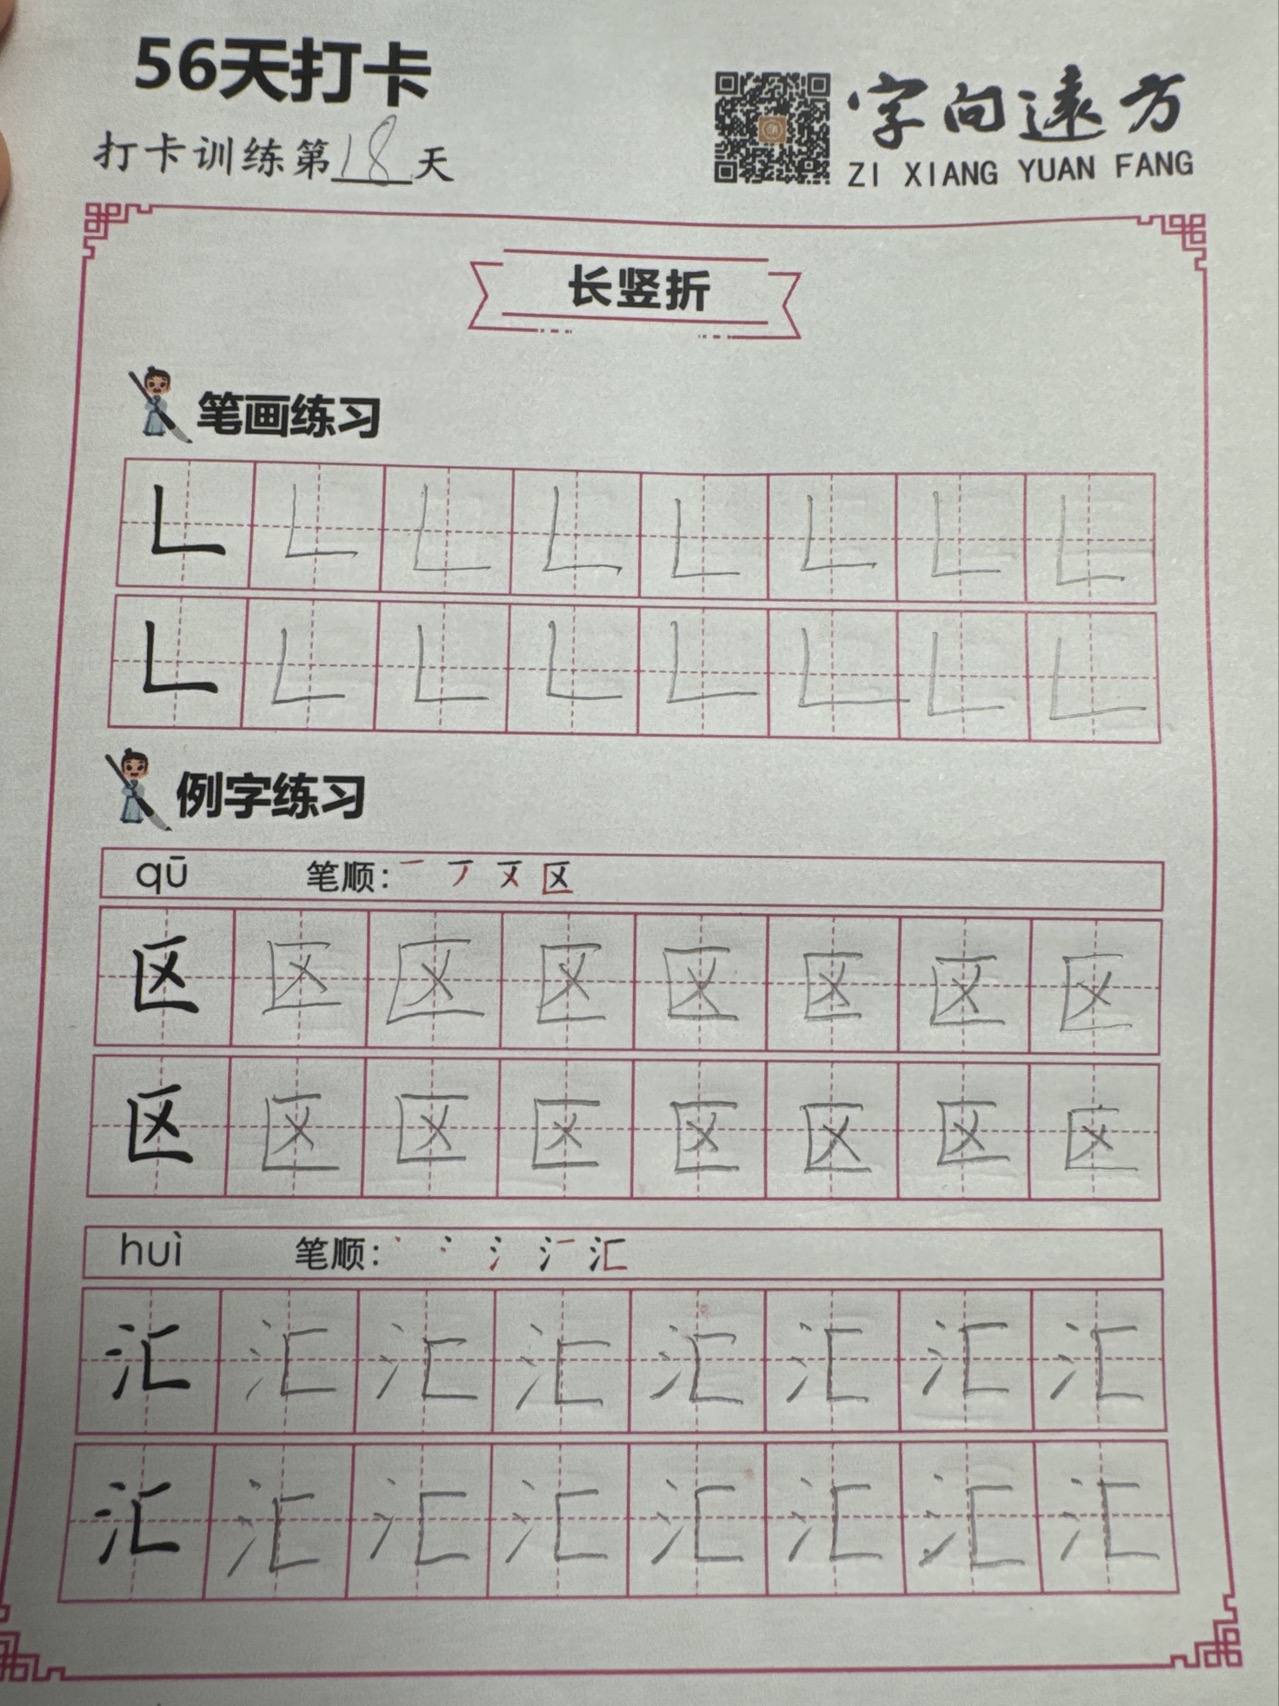 56天打卡
打卡训练第18天
字向遠方
ZI XIANG YUAN FANG
长竖折
笔画练习
例字练习
qū 笔顺: 一 丆 又 区
区 区 区 区 区 区 区 区
区 区 区 区 区 区 区 区
huì 笔顺: 丶 冫 氵 汇
汇 汇 汇 汇 汇 汇 汇 汇
汇 汇 汇 汇 汇 汇 汇 汇